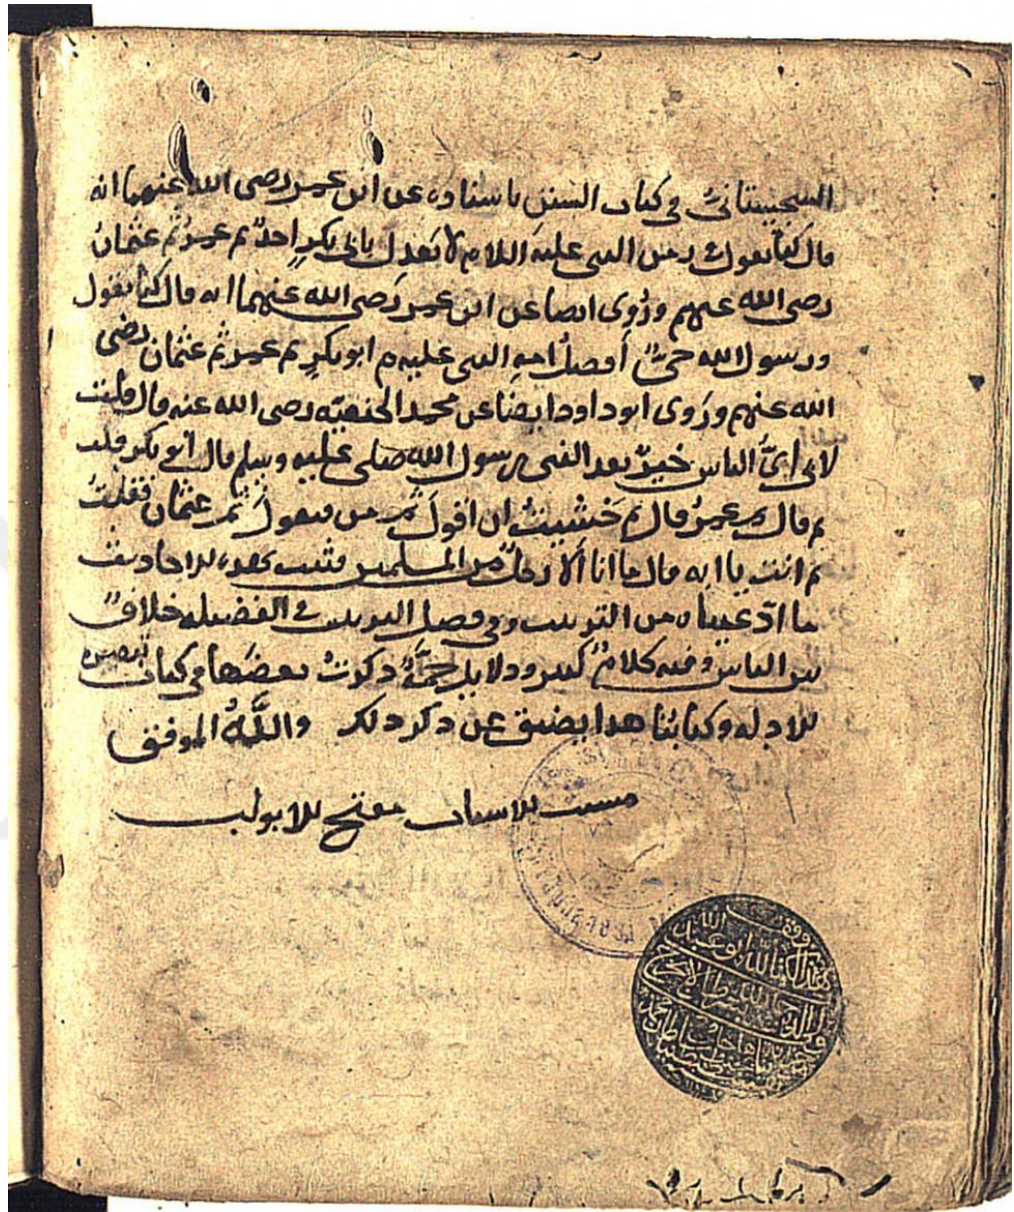 السجستانىّ فى كتاب السنن باسناده عن ابن عمر رضى الله عنهما انه
قال كنا نقول فى زمن النبى عليه السلام لا نعدل بابى بكرٍ احدٌ ثم عمرُ ثم عثمانُ
رضى الله عنهم ورُوى ايضا عن ابن عمر رَضى الله عنهما انه قال كنا نقول
ورسول الله حىٌّ أفضلُ امةِ النبى عليه م ابو بكرٍ ثم عمرُ ثم عثمان رضى
الله عنهم ورَوى ابو داود ايضا عن محمد الحنفيّه رضى الله عنه قال قلت
لابى اىُّ الناس خيرٌ بعد النبى رسول الله صلى عليه وسلم قال ابو بكر قلت
ثم قال ثم عمرُ قال ثم خشيتُ ان اقول ثم من فيقول ثم عثمان فقلتُ
ثم انت يا ابه قال ما انا الا رجلٌ من المسلمين فثبت بهذه الاحاديث
ما ادّعيناه من الترتيب وفى فصل الترتيب فى الفضيله خلافٌ
بين الناس وفيه كلامٌ كثير ودلايل جمّةٌ ذكرتُ بعضها فى كتاب تبصره
الادله وكتابُنا هذا يضيق عن ذكر ذلك والله الموفق
الاسباب مفتح الابواب